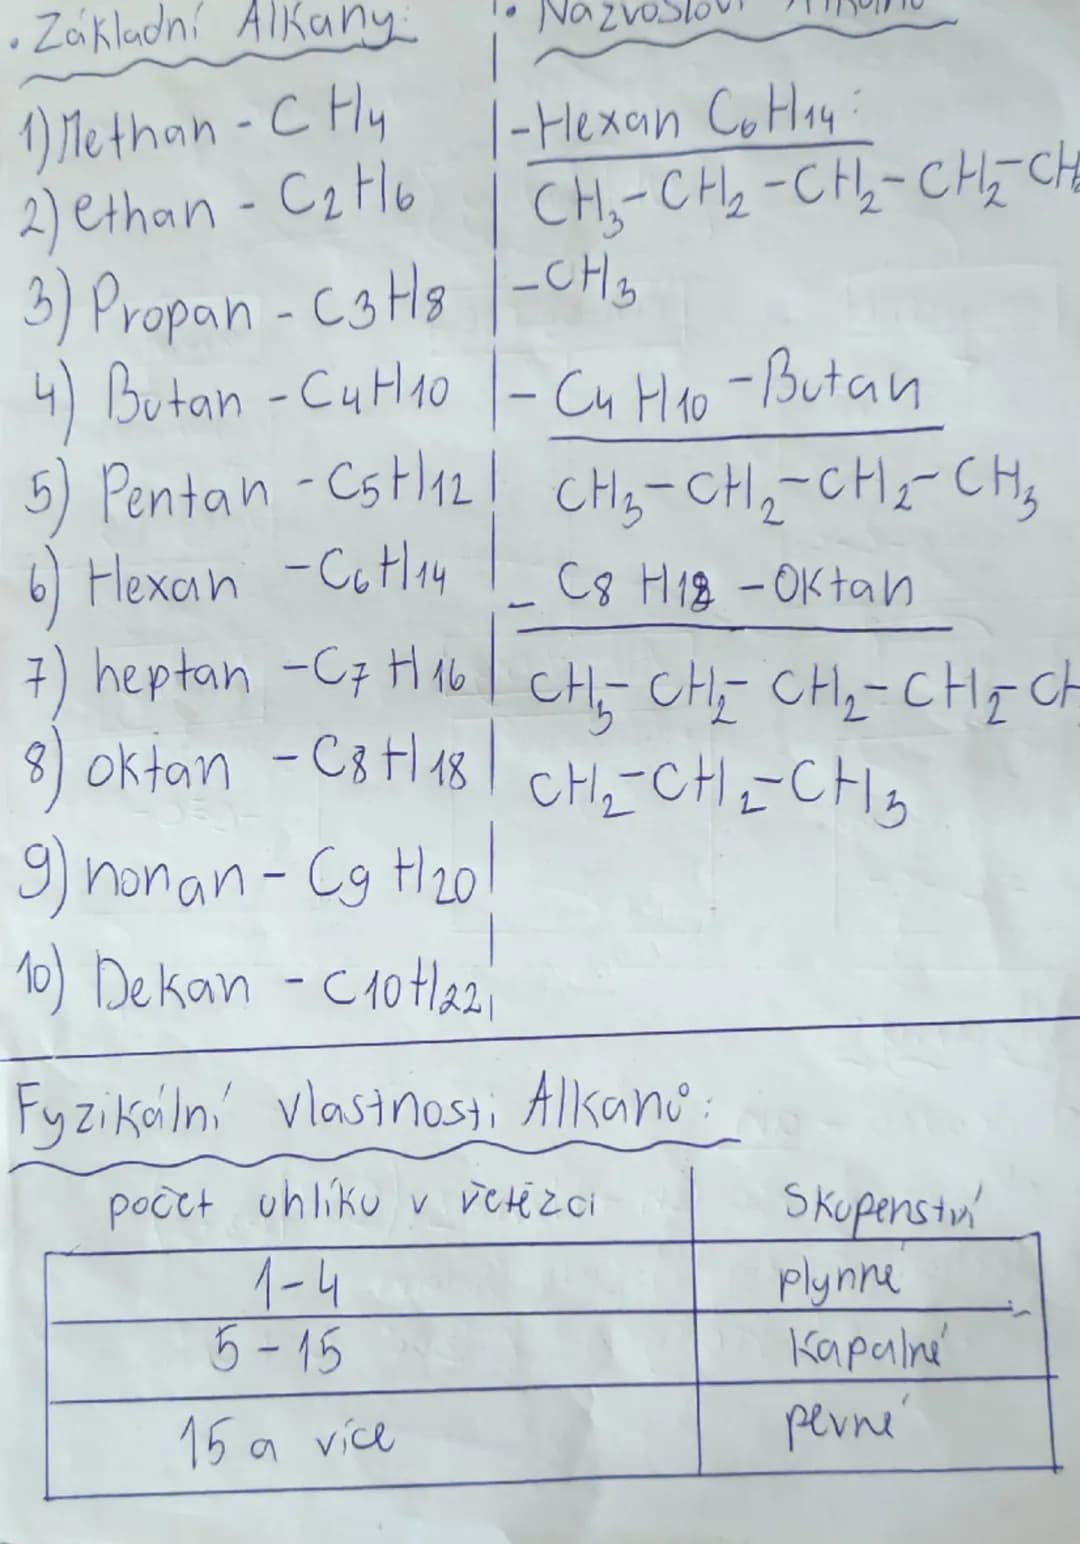 • Základní Alkany:
1) Methan - CH4
2) ethan - C2H6
3) Propan - C3H8
4) Butan - C4H10
5) Pentan - C5H12
6) Hexan - C6H14
7) heptan - C7H16
8) oktan - C8H18
9) nonan - C9H20
10) Dekan - C10H22
• Názvosloví
- Hexan C6H14:
CH3-CH2-CH2-CH2-CH2
-CH3
- C4H10 - Butan
CH3-CH2-CH2-CH3
- C8H18 - Oktan
CH3-CH2-CH2-CH2-CH
CH2-CH2-CH3
Fyzikální vlastnosti Alkanů:
počet uhlíku v řetězci Skupenství
1-4 plynné
5-15 Kapalné
15 a více pevné